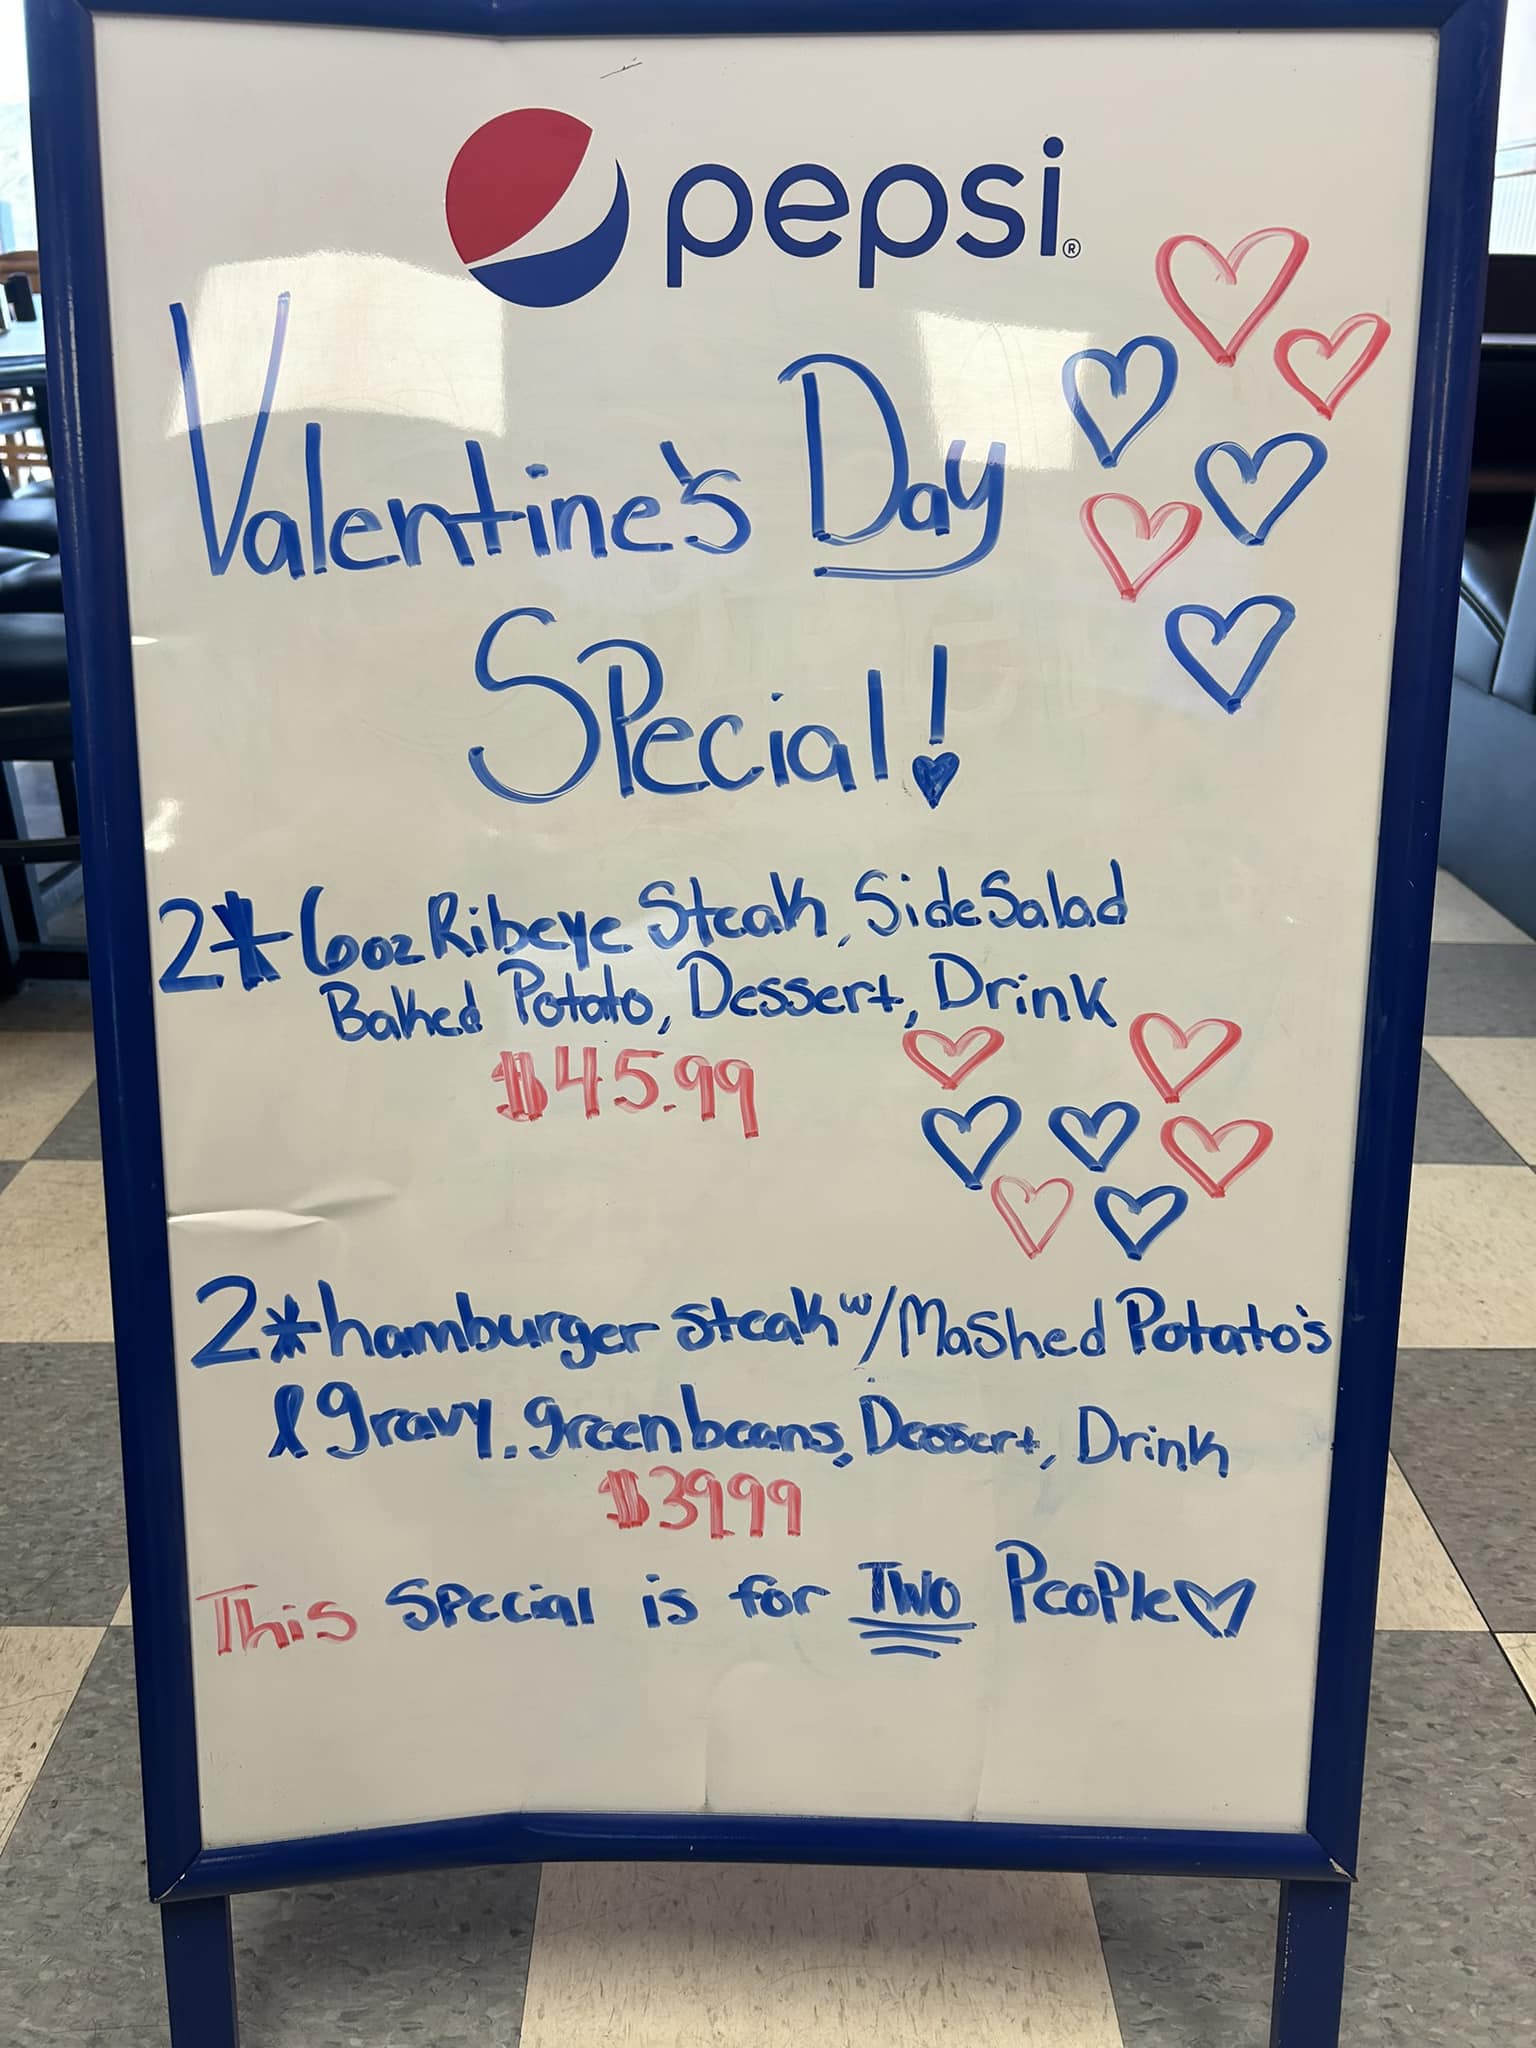 pepsi®
Valentine's Day
Special!
2* 6oz Ribeye Steak, Side Salad
Baked Potato, Dessert, Drink
$45.99
2* hamburger steak w/ Mashed Potato's
& gravy, green beans, Dessert, Drink
$39.99
This special is for TWO People